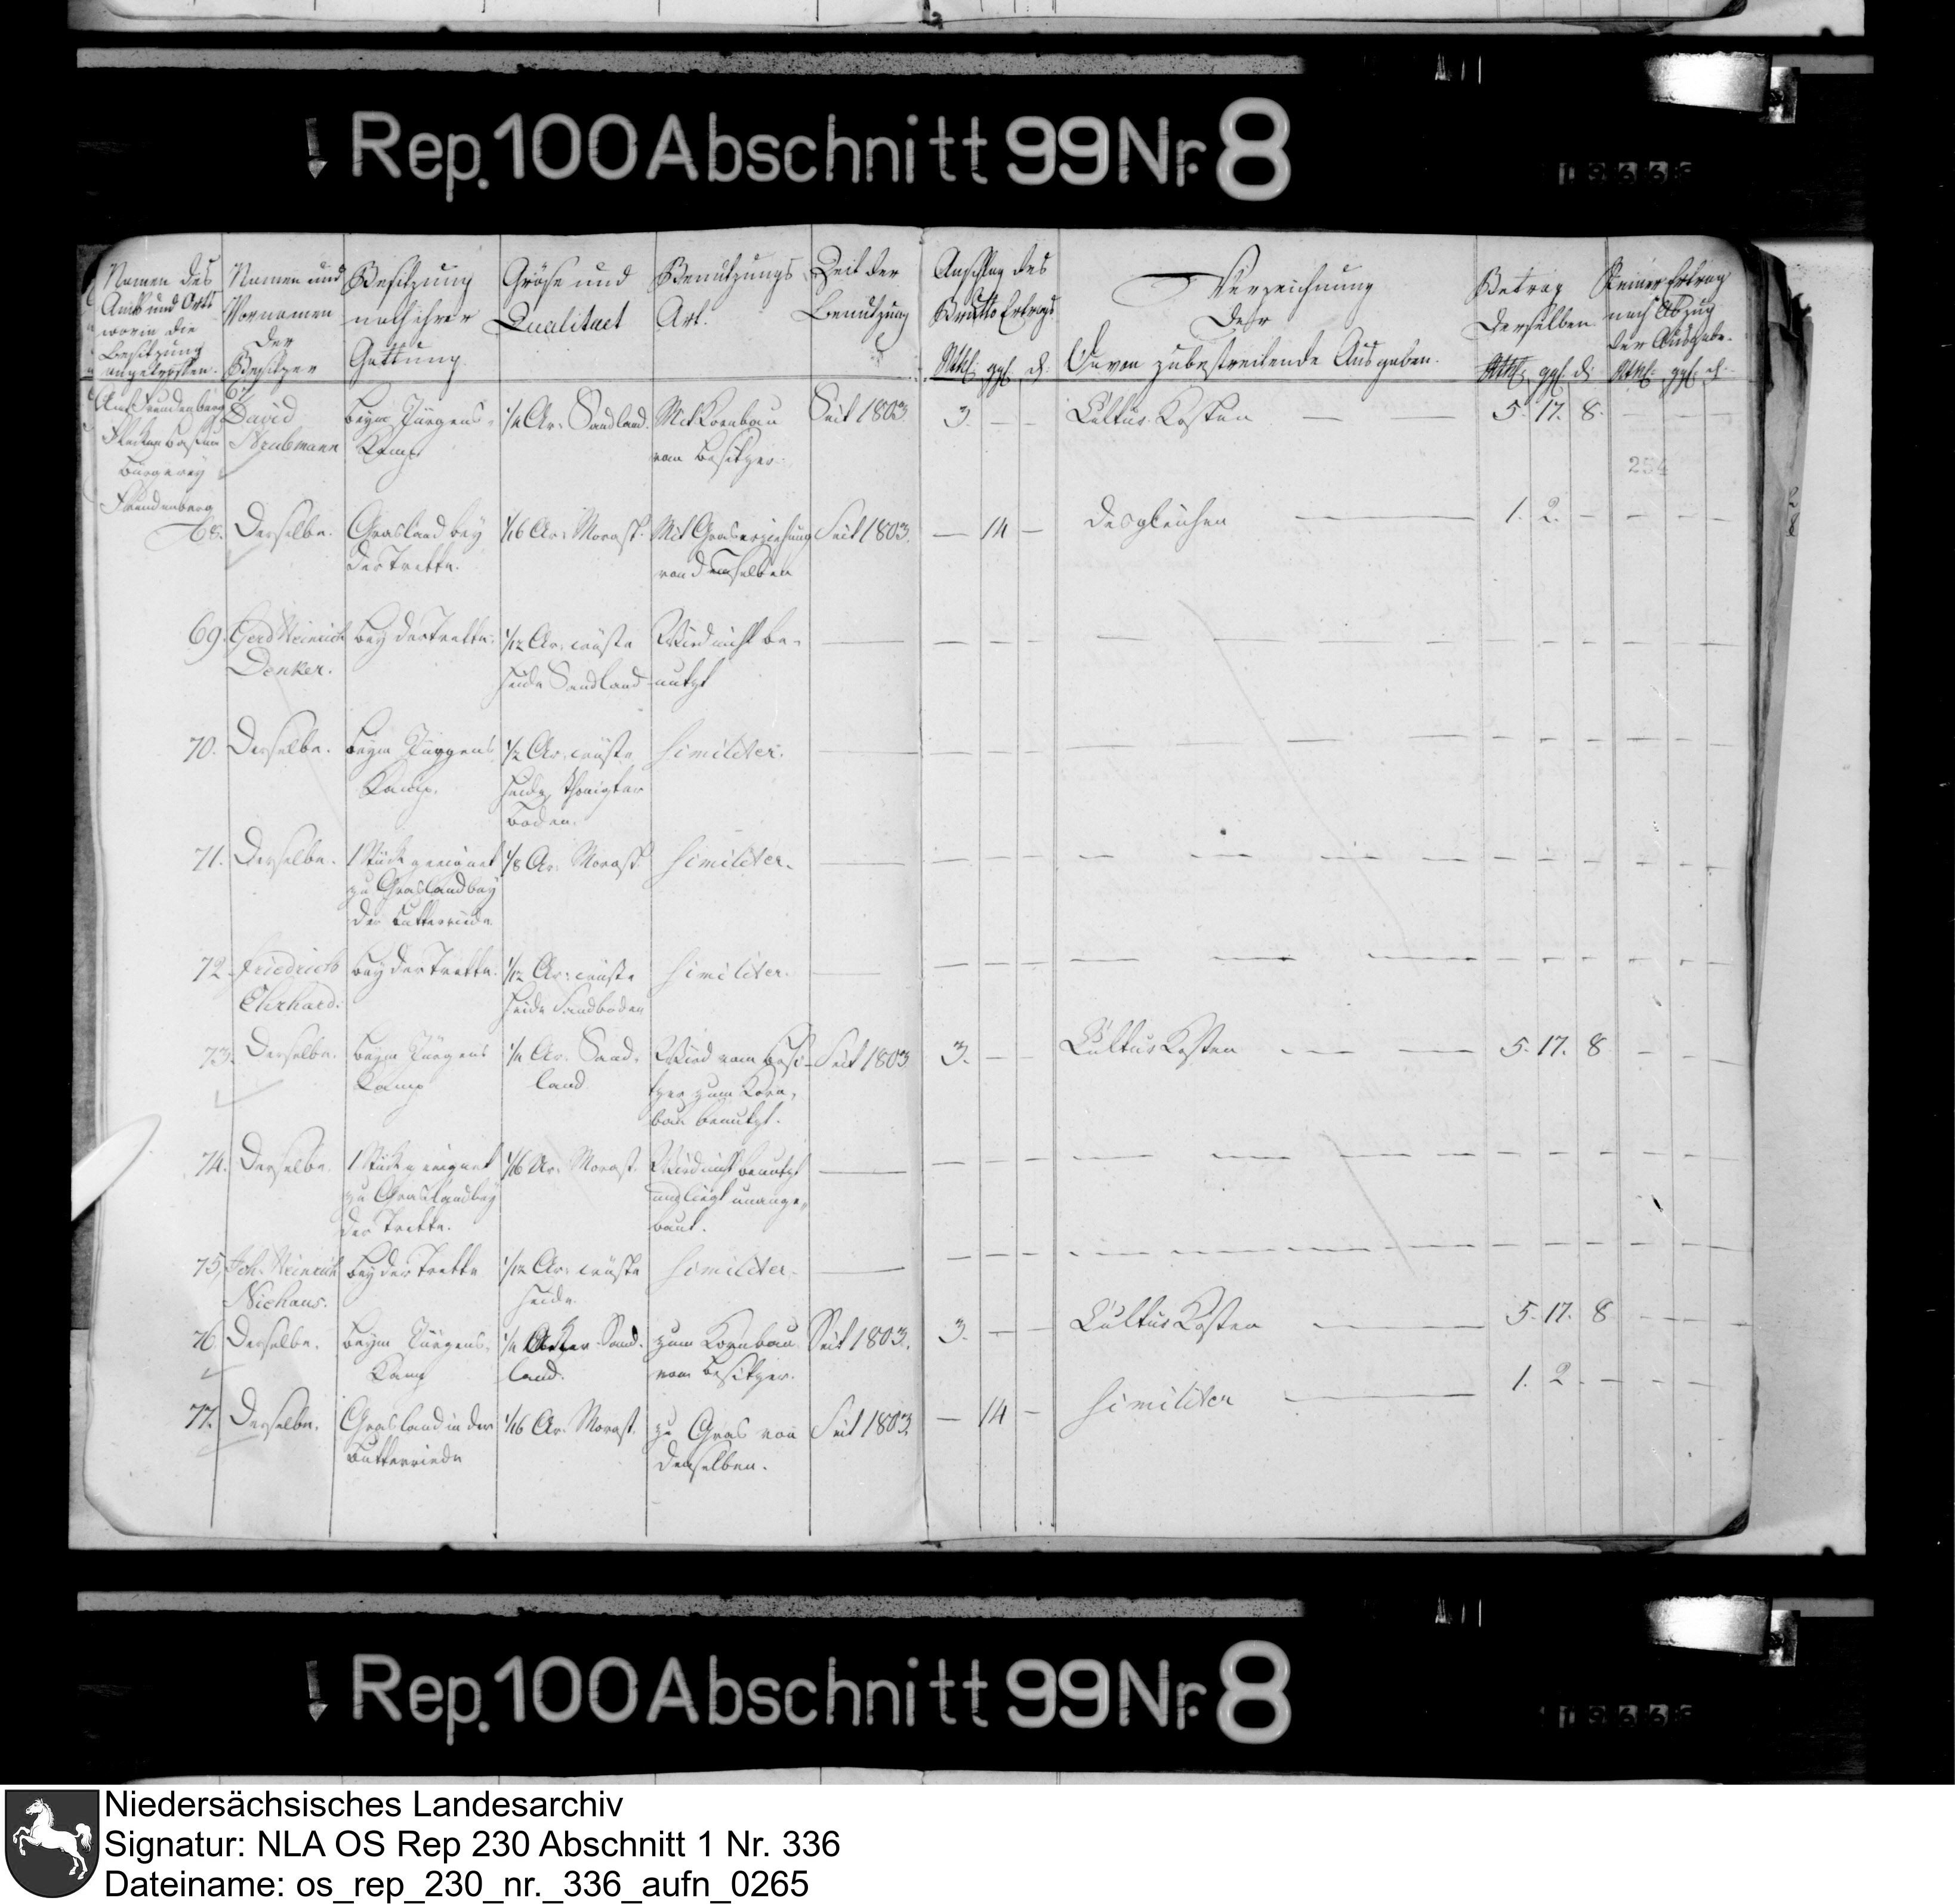 Rep. 100 Abschnitt 99 Nr. 8
Namen des Amts und Orts worin die Besitzung angetroffen.
Namen und Vornamen der Besitzer
Besitzung nach ihrer Gattung.
Gröse und Qualitaet
Benutzungs Art.
Zeit der Benutzung
Anschlag des Brutto Ertrags
Rthl. ggl. d.
Verzeichnung der Davon zubestreitende Ausgaben.
Betrag derselben.
Rthl. ggl. d.
Reiner Ertrag nach Abzug der Ausgabe.
Rthl. ggl. d.
Amt Freudenberg
Flecken Bassum
Bürgerey
Freudenberg
67. David beym Jürgens- 1/2 Ar. Sandland. Mit Kornbau Seit 1803 3. — — Cultur Kosten — — 5. 17. 8. — — —
Kamp vom Besitzer.
254
68. Derselbe. Grasland bey 1/16 Ar. Morast. Mit Graserziehung Seit 1803. — 14 — desgleichen — 1. 2. — — — —
der Trette. von demselben
69. Gerd Heinrich bey der Trette. 1/12 Ar. wüste Wird nicht be- — — — —
Denker. Heide Sandland nutzt
70. Derselbe. beym Jürgens 1/2 Ar. wüste similiter. — — — —
Kamp. Heide, thonigter
Boden.
71. Derselbe. 1 Stück geeignet 1/8 Ar. Morast. similiter. — — — —
zu Grasland bey
der Butterriede
72. Friedrich bey der Trette. 1/12 Ar. wüste similiter. — — — —
Ehrhard. Heide Sandboden
73. Derselbe. beym Jürgens 1/2 Ar. Sand- Wird vom Besi- Seit 1803 3. — — Cultur Kosten — — 5. 17. 8 — — —
Kamp land tzer zum Korn-
bau benutzt.
74. Derselbe. 1 Stück geeignet 1/16 Ar. Morast. Wird nicht benutzt — — — —
zu Grasland bey und liegt unange-
der Trette. baut.
75. Joh. Heinrich bey der Trette 1/12 Ar. wüste similiter. — — — —
Niehaus. Heide.
76. Derselbe. beym Jürgens- Sand- zum Kornbau Seit 1803. 3. — — Cultur Kosten — 5. 17. 8 — — —
Kamp land. vom Besitzer.
77. Derselbe. Grasland in der 1/16 Ar. Morast. zu Gras von Seit 1803. — 14 — similiter — 1. 2. — — — —
Butterriede demselben.
Rep. 100 Abschnitt 99 Nr. 8
Niedersächsisches Landesarchiv
Signatur: NLA OS Rep 230 Abschnitt 1 Nr. 336
Dateiname: os_rep_230_nr._336_aufn_0265